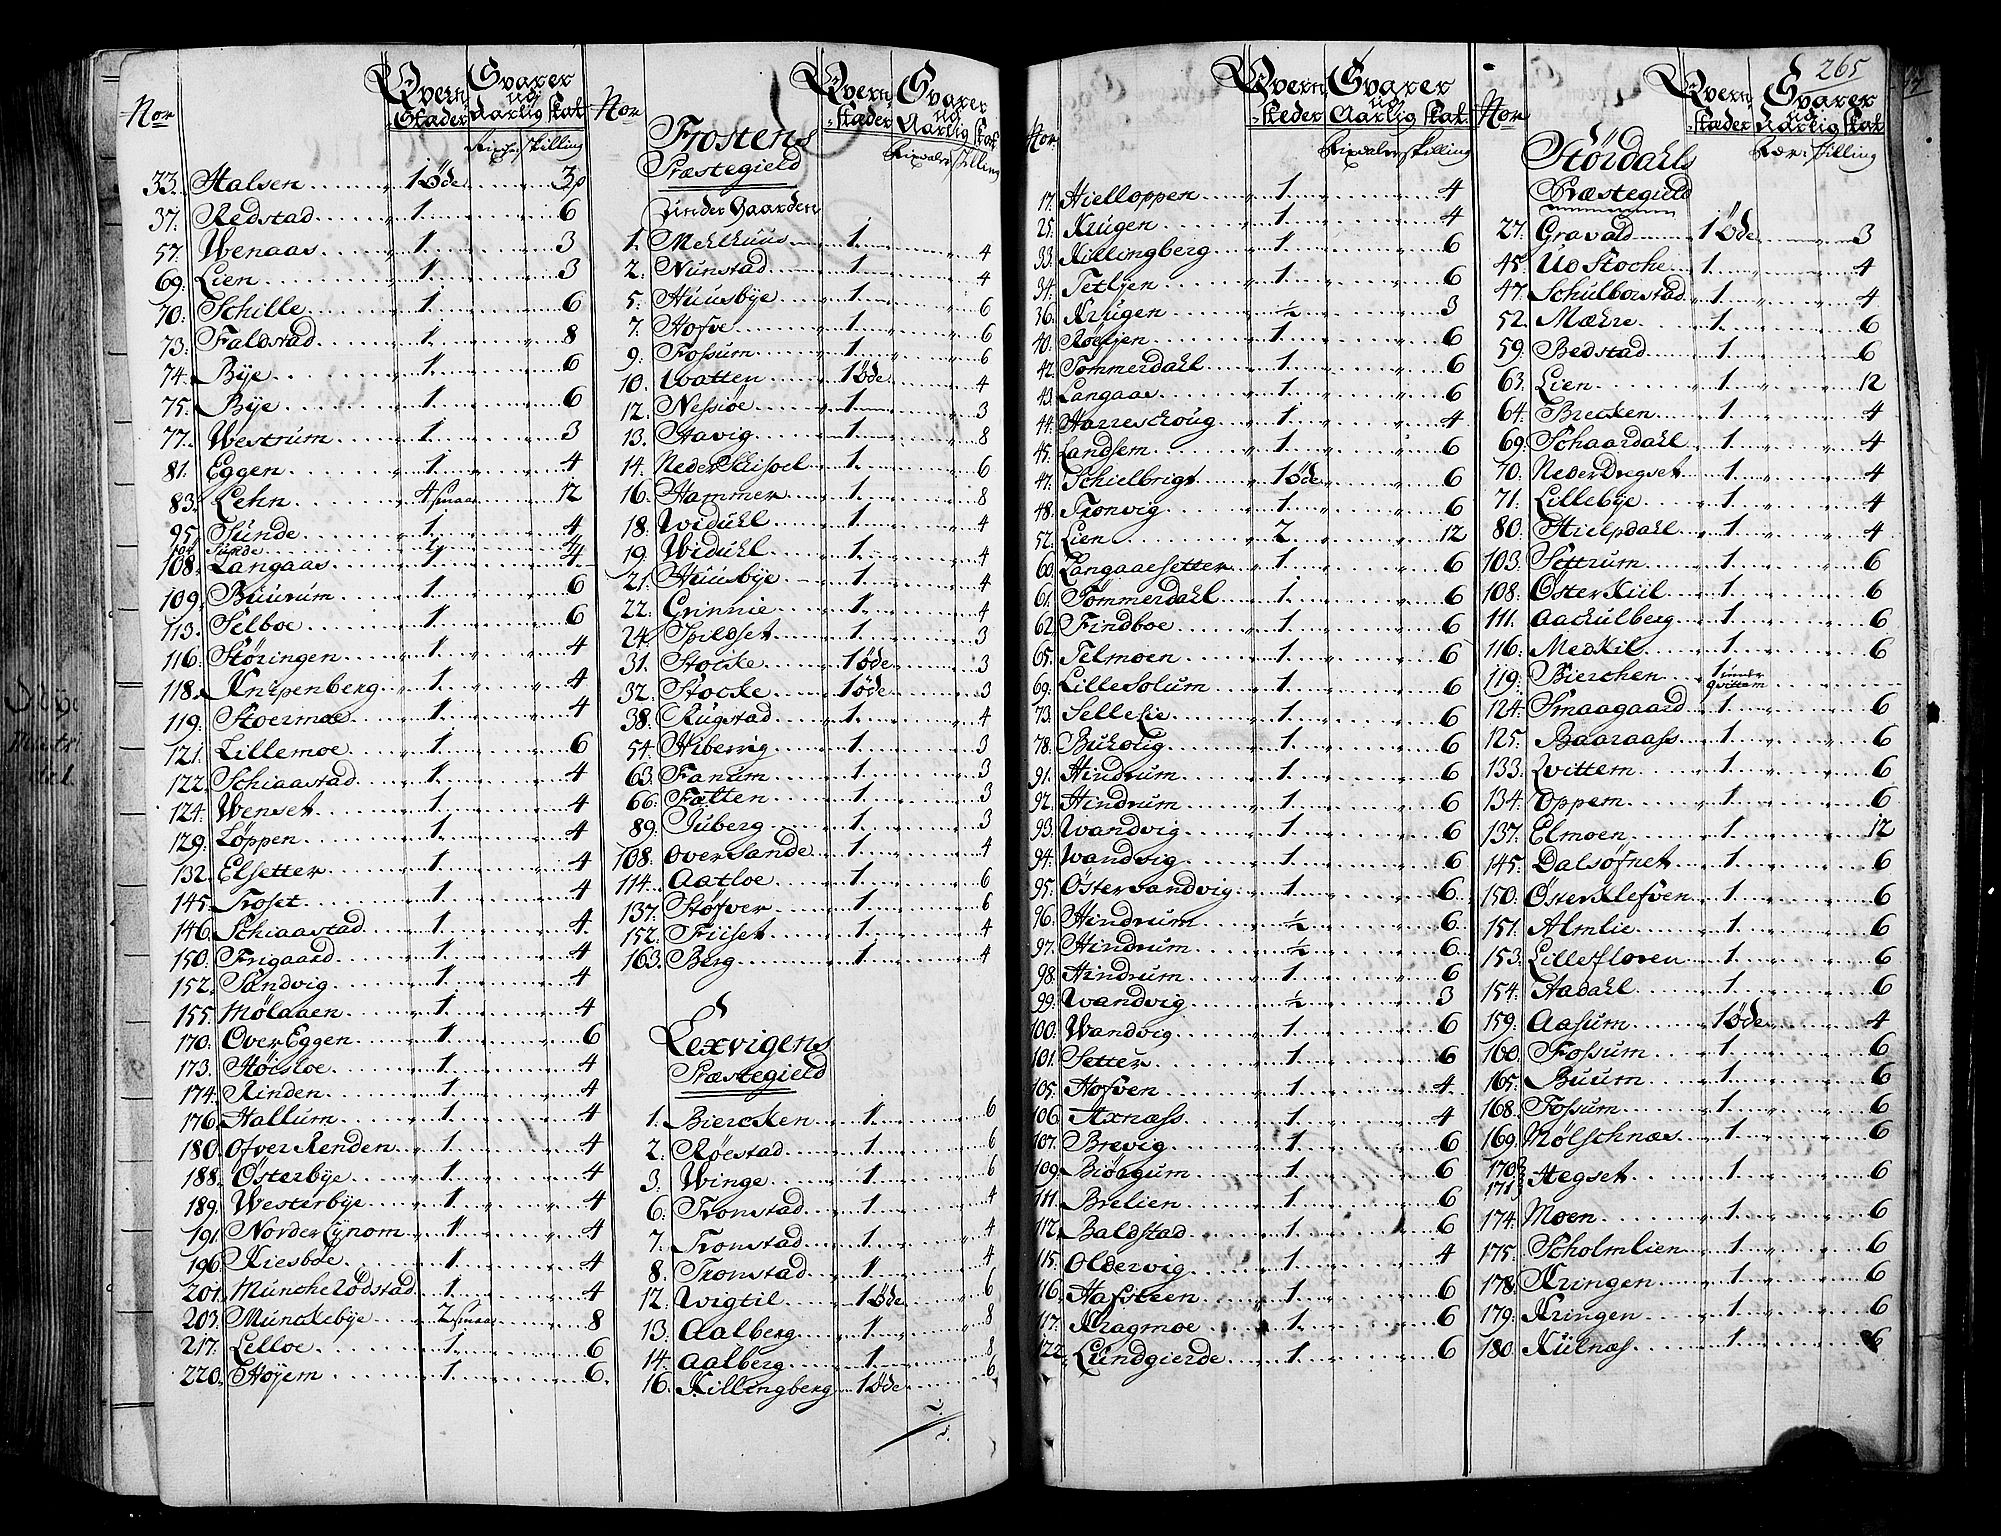 Nor Qvern Stæder Svarer ud Aarlig Skat
Rixdr skilling
33. Halsen 1 Øde 3
37. Redstad 1 6
57. Wenaas 1 3
69. Lien 1 3
70. Schille 1 6
73. Faldstad 1 8
74. Bÿe 1 6
75. Bÿe 1 6
77. Westrum 1 3
81. Eggen 1 4
83. Lehn 4 smaa 12
95. Sunde 1 4
Sunde 1 4
108. Langaas 1 4
109. Buurum 1 6
113. Selboe 1 6
116. Støringen 1 4
118. Knipenberg 1 4
119. Stoermoe 1 4
121. Lillemoe 1 6
122. Schiaastad 1 4
124. Wenset 1 4
129. Løppen 1 4
132. Elsetter 1 4
145. Troset 1 4
146. Schiaastad 1 4
150. Frigaard 1 4
152. Sandvig 1 4
155. Mølaaen 1 4
170. Over Eggen 1 6
173. Støisloe 1 4
174. Rinden 1 4
176. Hallum 1 4
180. Ofver Renden 1 4
188. Østerbÿe 1 4
189. Westerbÿe 1 4
191. Norder Lÿnom 1 4
196. Kiesboe 1 4
201. Munche Lødstad 1 4
203. Munckebÿe 2 smaa 8
217. Lelloe 1 6
220. Høÿem 1 6
Nor Qvern stæder Svarer ud Aarlig Skat
Rixdaler skilling
Frostens
Præstegield
Under Gaarden
1. Mehlhuus 1 4
2. Nunstad 1 4
5. Huusbÿe 1 6
7. Hofve 1 6
9. Fossum 1 6
10. Watten 1 øde 4
12. Nessiøe 1 3
13. Stavig 1 8
14. Neder Skisoel 1 6
16. Hammer 1 8
18. Widuhl 1 4
19. Widuhl 1 4
21. Huusbÿe 1 4
22. Grinnie 1 4
24. Spildset 1 3
31. Stocke 1 øde 3
32. Stocke 1 øde 3
38. Rugstad 1 4
54. Hibervig 1 3
63. Fanum 1 3
66. Fatten 1 3
89. Juberg 1 3
108. Over Sande 1 4
114. Aatloe 1 6
137. Støfver 1 6
152. Friiset 1 4
163. Berg 1 4
Lexvigens
Præstegield
1. Biercken 1 6
2. Røestad 1 6
3. Winge 1 6
6. Tronstad 1 4
7. Tronstad 1 4
8. Tronstad 1 4
12. Wigtil 1 øde 6
13. Aalberg 1 8
14. Aalberg 1 8
16. Killingberg 1 øde 6
Nor Qvern stæder Svarer ud Aarlig Skat
Rixdaler skilling
17. Hielloppen 1 4
25. Krugen 1 4
33. Killingberg 1 6
34. Tetlien 1 6
36. Krugen ½ 3
40. Røelien 1 6
42. Tommerdahl 1 6
43. Langaae 1 6
44. Harreschoug 1 4
45. Landsem 1 6
47. Schielbrigt 1 øde 6
48. Tronvig 1 6
52. Lien 2 12
60. Langaaesetter 1 6
61. Tømmerdahl 1 6
62. Findboe 1 6
65. Telmoen 1 6
69. Lille Solum 1 6
73. Sellelie 1 6
78. Bukolig 1 6
91. Hindrum 1 6
92. Hindrum 1 6
93. Wandvig 1 6
94. Wandvig 1 6
95. Øster vandvig 1 6
96. Hindrum ½ 6
97. Hindrum ½ 6
98. Hindrum 1 6
99. Wandvig ½ 3
100. Wandvig 1 6
101. Setter 1 6
105. Hofven 1 4
106. Axnæss 1 4
107. Brevig 1 6
109. Biørgum 1 6
111. Brelien 1 6
112. Baldstad 1 6
115. Oldervig 1 4
116. Hafsteen 1 6
117. Kragmoe 1 6
122. Lundgierde 1 6
265
Nor Qvern stæder Svarer ud Aarlig Skat
skilling
Størdahls
Præstegield
27. Gravald 1 Øde 3
45. Ud Stocke 1 4
47. Schulborstad 1 4
52. Mæhre 1 6
59. Bedstad 1 6
63. Lien 1 12
64. Brecken 1 4
69. Schaardahl 1 4
70. Neder Dregset 1 4
71. Lillebÿe 1 4
80. Hielpdahl 1 4
103. Settrum 1 6
108. Øster Kiil 1 6
111. Aachulberg 1 6
116. Medkil 1 6
119. Bierchen 1 under qvittem
124. Smaagaard 1 6
125. Baaraass 1 6
133. Qvittem 1 6
134. Oppem 1 6
137. Elmoen 1 12
145. Dalsøfnet 1 6
150. Øster Klefven 1 6
151. Almlie 1 6
153. Lillefloren 1 6
154. Aadahl 1 6
159. Aasum 1 øde 4
160. Fossum 1 6
165. Buum 1 6
168. Fossum 1 6
169. Mølschnæs 1 6
170. 171 Hegset 1 6
174. Moen 1 6
175. Scholmlien 1 6
178. Kringen 1 6
179. Kringen 1 6
180. Kulnæs 1 6